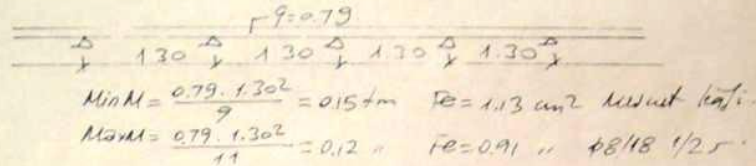 q=0.79
1.30 1.30 1.30 1.30
Min M = 0.79 . 1.30² / 9 = 0.15 tm Fe = 1.13 cm² mesnet
Max M = 0.79 . 1.30² / 11 = 0.12 " Fe = 0.91 " ϕ8/18 1/2